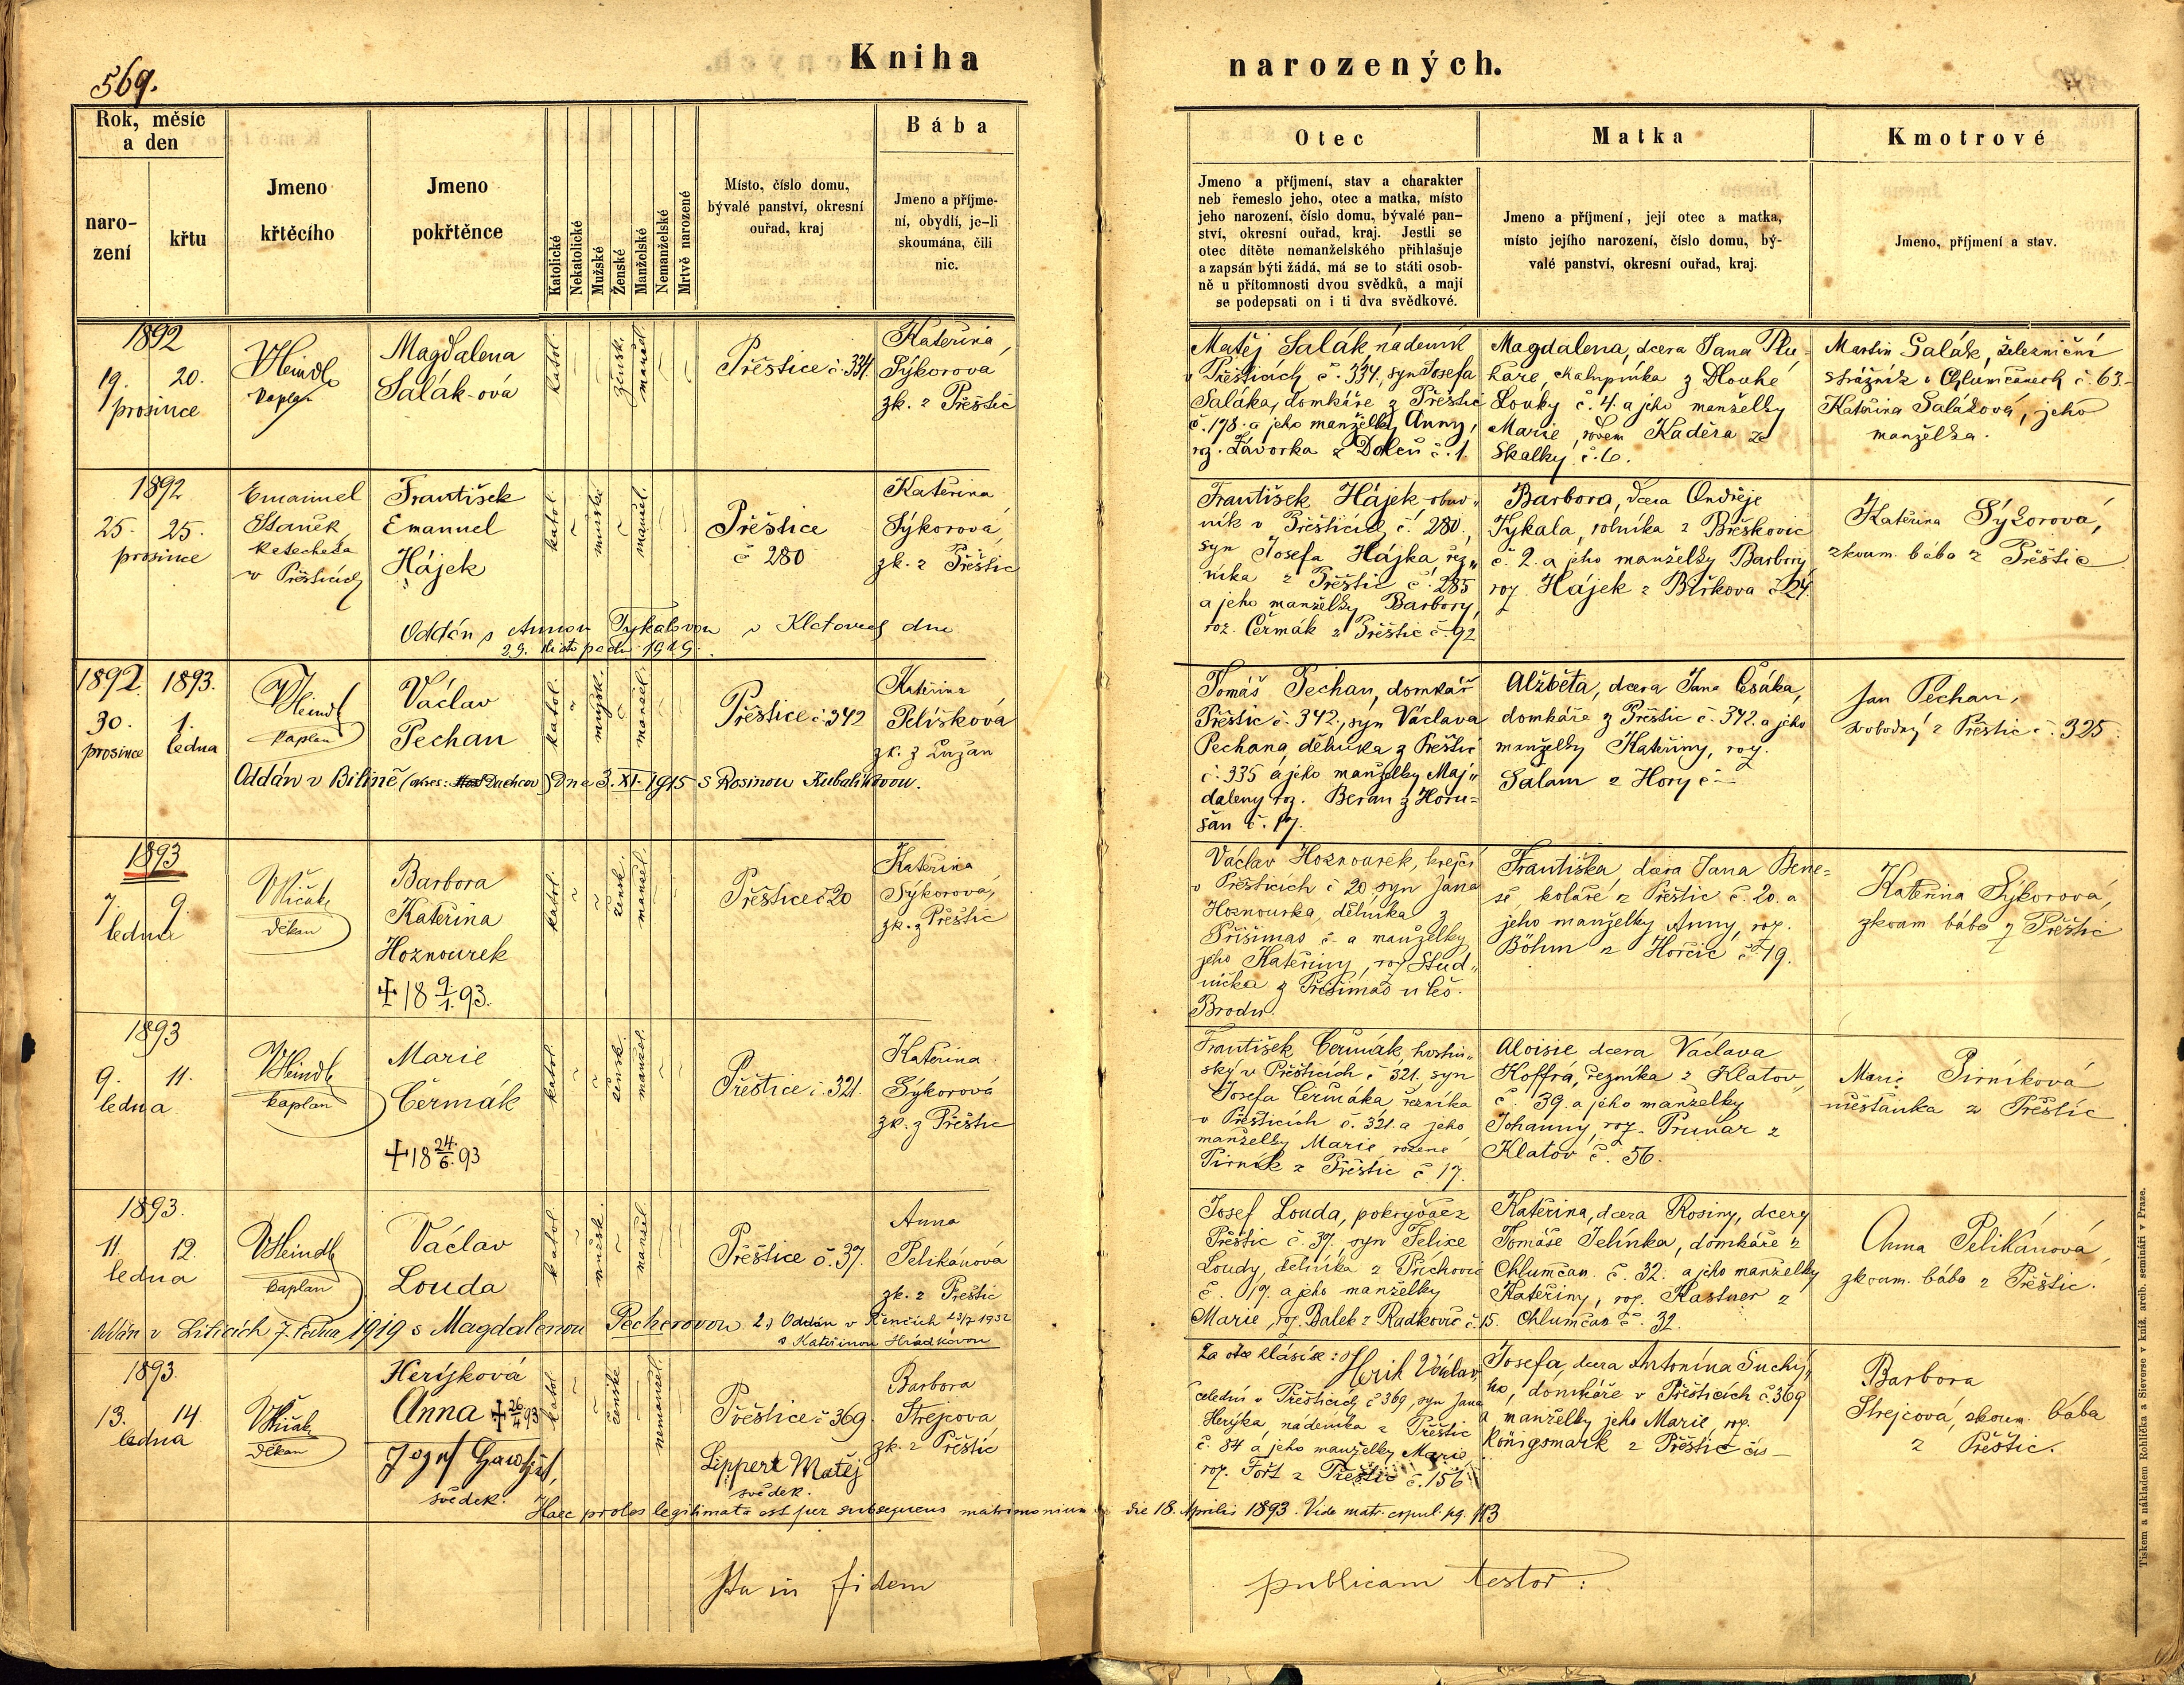 569.
Kniha narozených.
Rok, měsíc
a den
naro-
zení
křtu
Jmeno
křtěcího
Jmeno
pokřtěnce
Katolické
Nekatolické
Mužské
Ženské
Manželské
Nemanželské
Mrtvě narozené
Místo, číslo domu,
bývalé panství, okresní
ouřad, kraj
Bába
Jmeno a příjme-
ní, obydlí, je-li
skoumána, čili
nic.
Otec
Jmeno a příjmení, stav a charakter
neb řemeslo jeho, otec a matka, místo
jeho narození, číslo domu, bývalé pan-
ství, okresní ouřad, kraj. Jestli se
otec dítěte nemanželského přihlašuje
a zapsán býti žádá, má se to státi osob-
ně u přítomnosti dvou svědků, a mají
se podepsati on i ti dva svědkové.
Matka
Jmeno a příjmení, její otec a matka,
místo jejího narození, číslo domu, bý-
valé panství, okresní ouřad, kraj.
Kmotrové
Jmeno, příjmení a stav.
1892
19. 20.
prosince
VHeindl
kaplan
Magdalena
Salák-ová
katol.
žensk.
manžel.
Přeštice č. 334
Kateřina
Sýkorová
zk. z Přeštic
Matěj Salák nádeník
v Přešticích č. 334., syn Josefa
Saláka, domkáře z Přeštic
č. 198. a jeho manželky Anny,
roz. Závorka z Dolců č. 1.
Magdalena, dcera Jana Plu-
haře, chalupníka z Dlouhé
Louky č. 4. a jeho manželky
Marie, rodem Kaděra ze
Skalky č. 6.
Martin Salák, železniční
strážník v Chlumčanech č. 63.
Kateřina Saláková, jeho
manželka.
1892
25. 25.
prosince
Emanuel
Staněk
katecheta
v Přešticích
František
Emanuel
Hájek
katol.
mužské
manžel.
Přeštice
č 280
Kateřina
Sýkorová,
zk. z Přeštic
František Hájek obuv-
ník v Přešticích č. 280.,
syn Josefa Hájka, řez-
níka z Přeštic č. 285
a jeho manželky Barbory,
roz. Čermák z Přeštic č. 92
Barbora, dcera Ondřeje
Tykala, rolníka z Břeškovic
č. 2. a jeho manželky Barbory
roz. Hájek z Birkova č. 24.
Kateřina Sýkorová,
zkoum. bába z Přeštic
Oddán s Annou Tykalovou v Klatovech dne
29. listopadu 1919.
1892. 1893.
30. 1.
prosince ledna
VHeindl
kaplan
Václav
Pechan
katol.
mužsk.
manžel.
Přeštice č. 342
Kateřina
Pelíšková
zk. z Lužan
Tomáš Pechan, domkář
Přeštic č. 342., syn Václava
Pechana, dělníka z Přeštic
č. 335 a jeho manželky Maj-
daleny roz. Beran z Horu-
šan č. 17.
Alžběta, dcera Jana Česáka,
domkáře z Přeštic č. 342. a jeho
manželky Kateřiny, roz.
Salam z Hory č —
Jan Pechan,
svobodný z Přeštic č. 325.
Oddán v Bilině (okres: Duchcov) dne 3. XI. 1915 s Rosinou Kubalíkovou.
1893
7. 9.
ledna
děkan
Barbora
Kateřina
Hoznourek
+ 18 9./1. 93.
katol.
žensk.
manžel.
Přeštice č 20
Kateřina
Sýkorová,
zk. z Přeštic
Václav Hoznourek, krejčí
v Přešticích č 20 syn Jana
Hoznourka, dělníka z
Přišimas č. — a manželky
jeho Kateřiny, roz. Stud-
nička z Přišimas u Čes.
Brodu.
Františka, dcera Jana Bene-
še, koláře z Přeštic č. 20. a
jeho manželky Anny, roz.
Böhm z Horčic č. 19.
Kateřina Sýkorová,
zkoum. bába z Přeštic
1893
9. 11.
ledna
VHeindl
kaplan
Marie
Čermák
+ 18 24./6. 93
katol.
žensk.
manžel.
Přeštice č. 321.
Kateřina
Sýkorová
zk. z Přeštic
František Čermák, hostin-
ský v Přešticích č 321. syn
Josefa Čermáka řezníka
v Přešticích č. 321. a jeho
manželky Marie, rozené
Pirník z Přeštic č. 17.
Aloisie, dcera Václava
Koffra, řezníka z Klatov,
č. 39. a jeho manželky
Johanny, roz. Prunar z
Klatov č. 56.
Marie Pirníková
měšťanka z Přeštic
1893.
11. 12.
ledna
VHeindl
kaplan
Václav
Louda
katol.
mužsk.
manžel.
Přeštice č. 37.
Anna
Pelikánová
zk. z Přeštic
Josef Louda, pokrývač z
Přeštic č. 37. syn Felixe
Loudy, dělníka z Příchovic
č. 19. a jeho manželky
Marie, roz. Balek z Radkovic č. 15.
Kateřina, dcera Rosiny, dcery
Tomáše Jelínka, domkáře z
Chlumčan č. 32. a jeho manželky
Kateřiny, roz. Kastner z
Chlumčan č. 32.
Anna Pelikánová,
zkoum. bába z Přeštic.
Oddán v Liticích 7. ledna 1919 s Magdalenou Pecherovou. 2) Oddán v Řenčích 23/7 1932
s Kateřinou Hrádkovou
1893.
13. 14.
ledna
děkan
Herýková
Anna + 26/4 93
svědek.
katol.
ženské
nemanžel.
Přeštice č 369.
Lippert Matěj
svědek.
Barbora
Strejcová
zk. z Přeštic
Za otce hlásí se: Herik Václav
čeledín v Přešticích č 369, syn Jana
Herýka, nádeníka z Přeštic
č. 84 a jeho manželky Marie,
roz. Fořt z Přeštic č. 156
Josefa, dcera Antonína Suchý-
ho, domkáře v Přešticích č 369
a manželky jeho Marie, roz.
Königsmark z Přeštic čís —
Barbora
Strejcová, zkoum. bába
z Přeštic.
Haec proles legitimata est per subsequens matrimonium die 18. Aprilis 1893. Vide matr. copul. pg. 113
Ita in fidem publicam testor:
Tiskem a nákladem Rohlíčka a Sieverse v kníž. arcib. semináři v Praze.